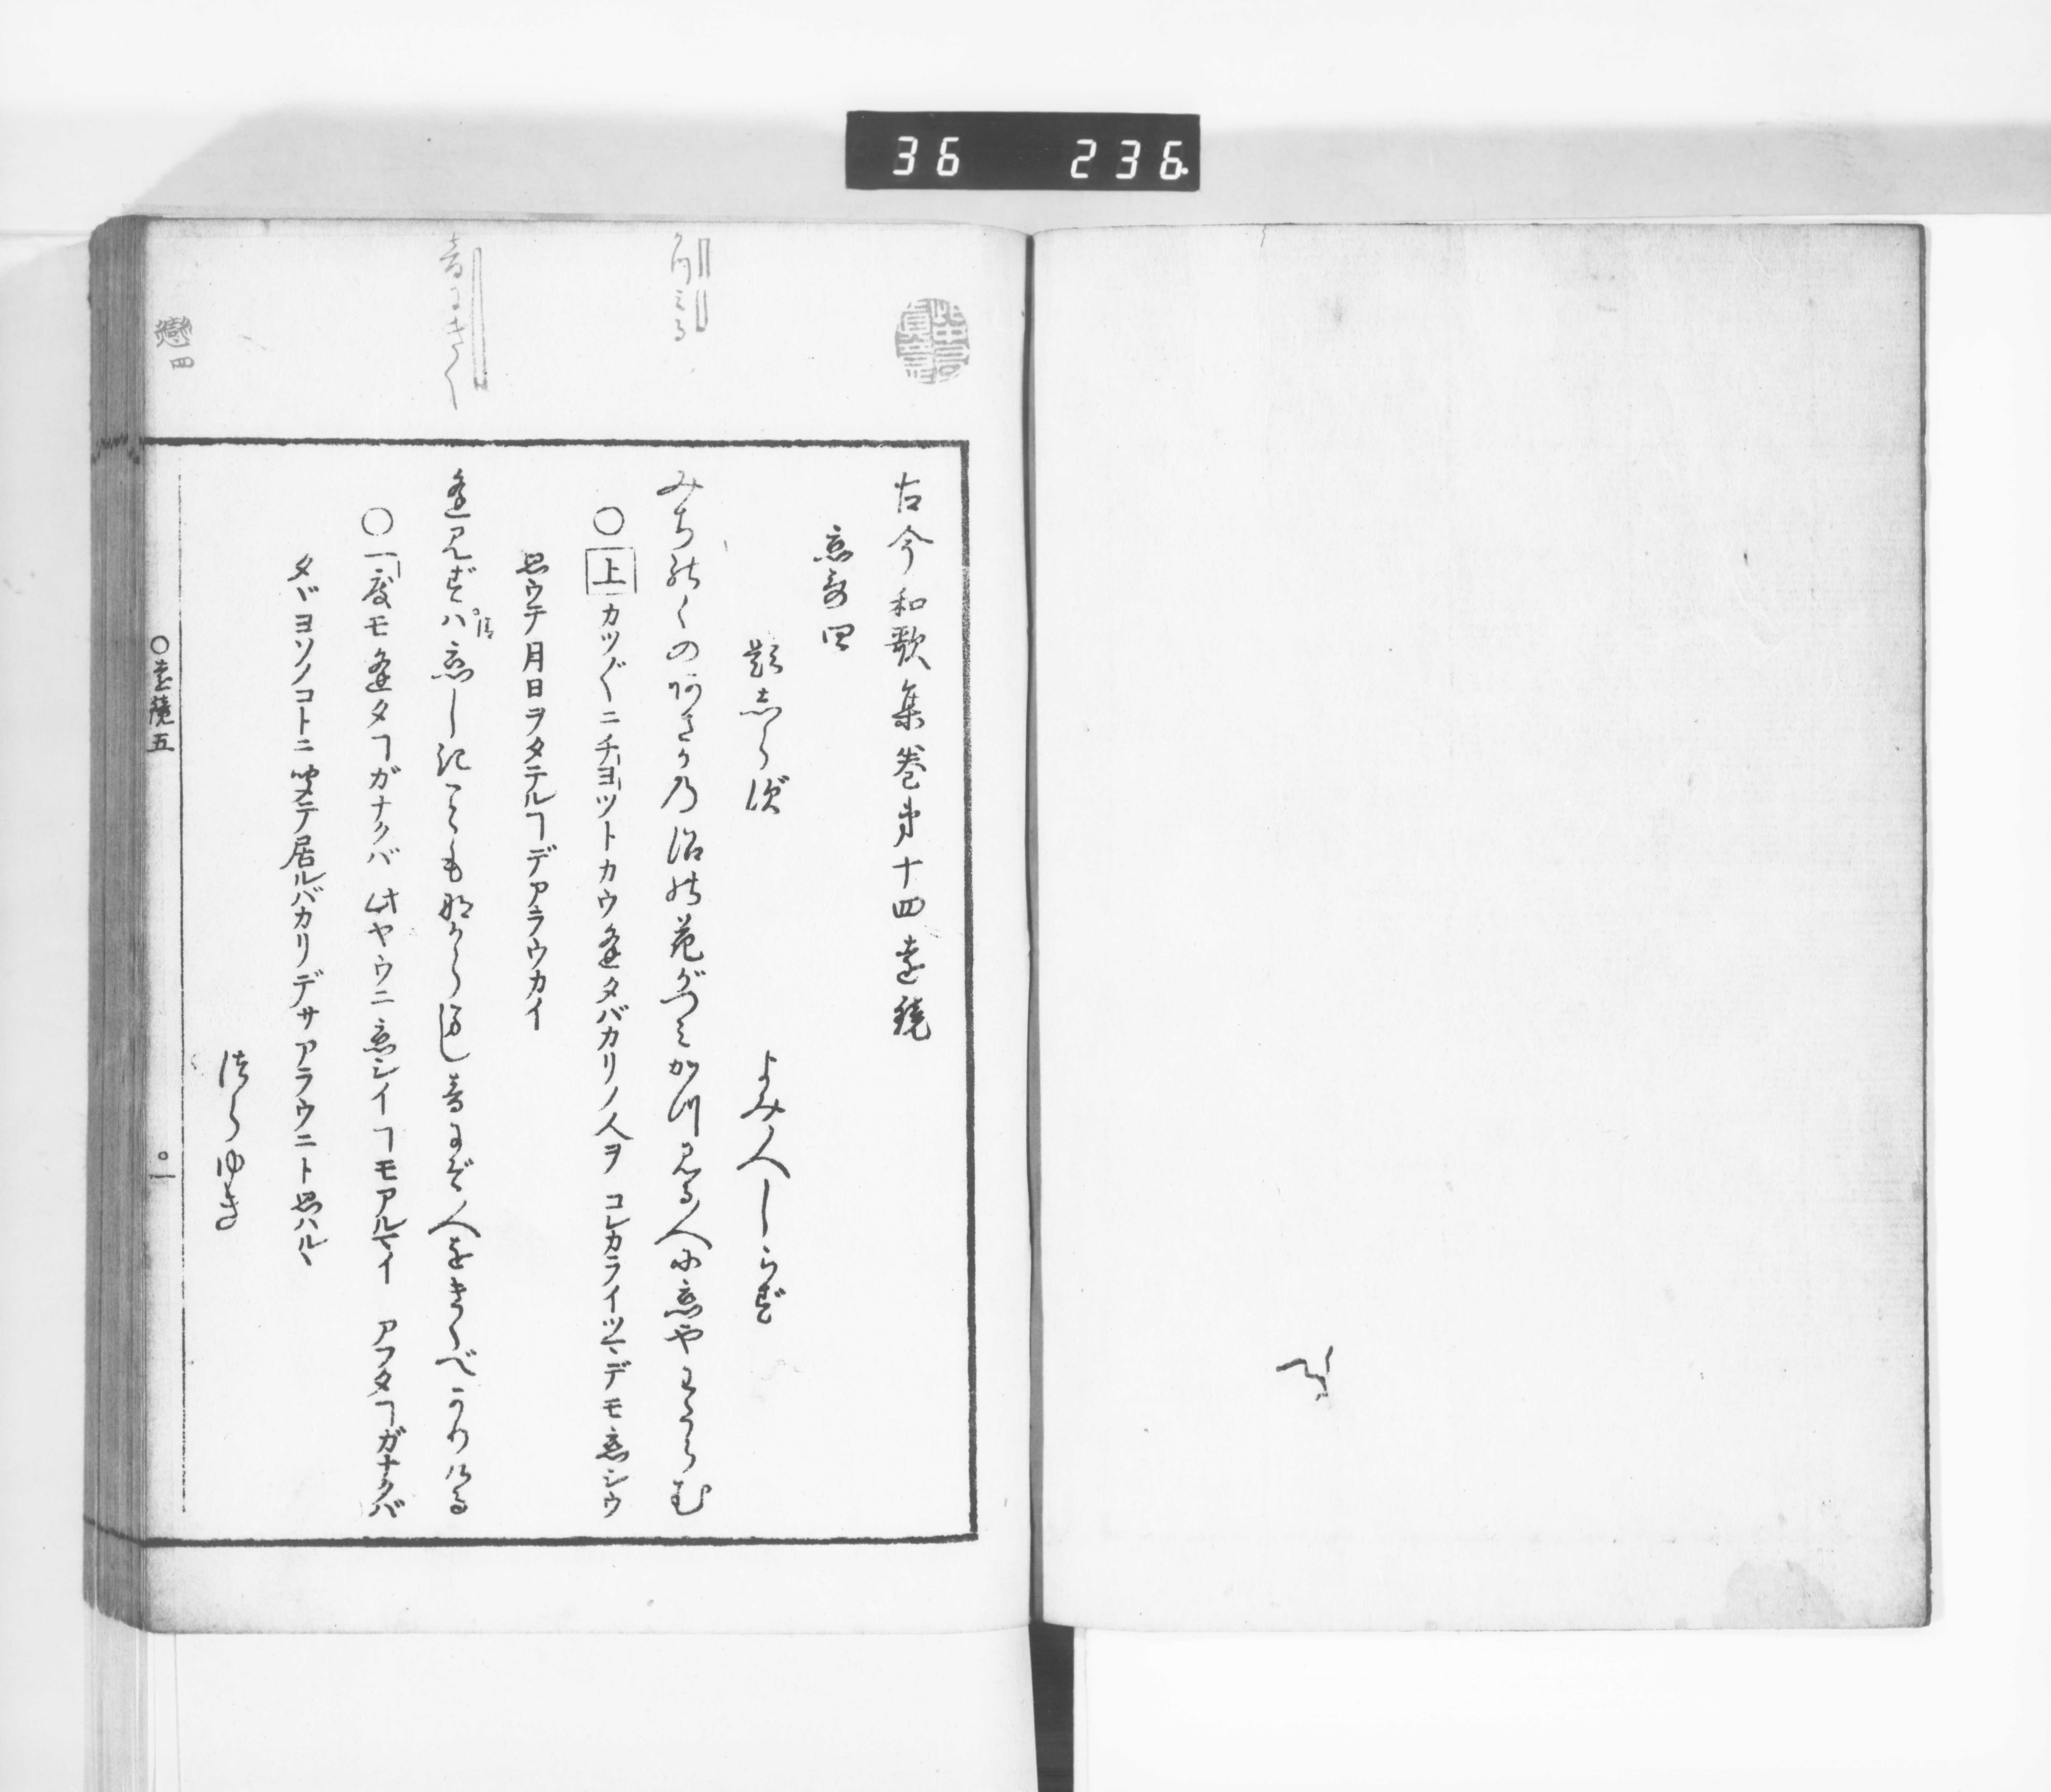 36 236
古今和歌集巻第十四遠鏡
恋哥四
題しらず
よみ人しらず
みちのくのあさかの沼の花がつみかつ見る人に恋やわたらむ
○上カツ〴〵ニチヨツトカウ逢タバカリノ人ヲ コレカライツマデモ恋シウ
思ウテ月日ヲタテルヿデアラウカイ
逢見ずハ恋しきこともなからまし音にぞ人をきくべかりける
○一度モ逢タヿガナクバ此ヤウニ恋シイヿモアルマイ アフタヿガナクバ
タヾヨソノコトニ聞テ居ルバカリデサアラウニト思ハルヽ
つらゆき
○遠鏡五
○一
かつみる
音にきく
戀四